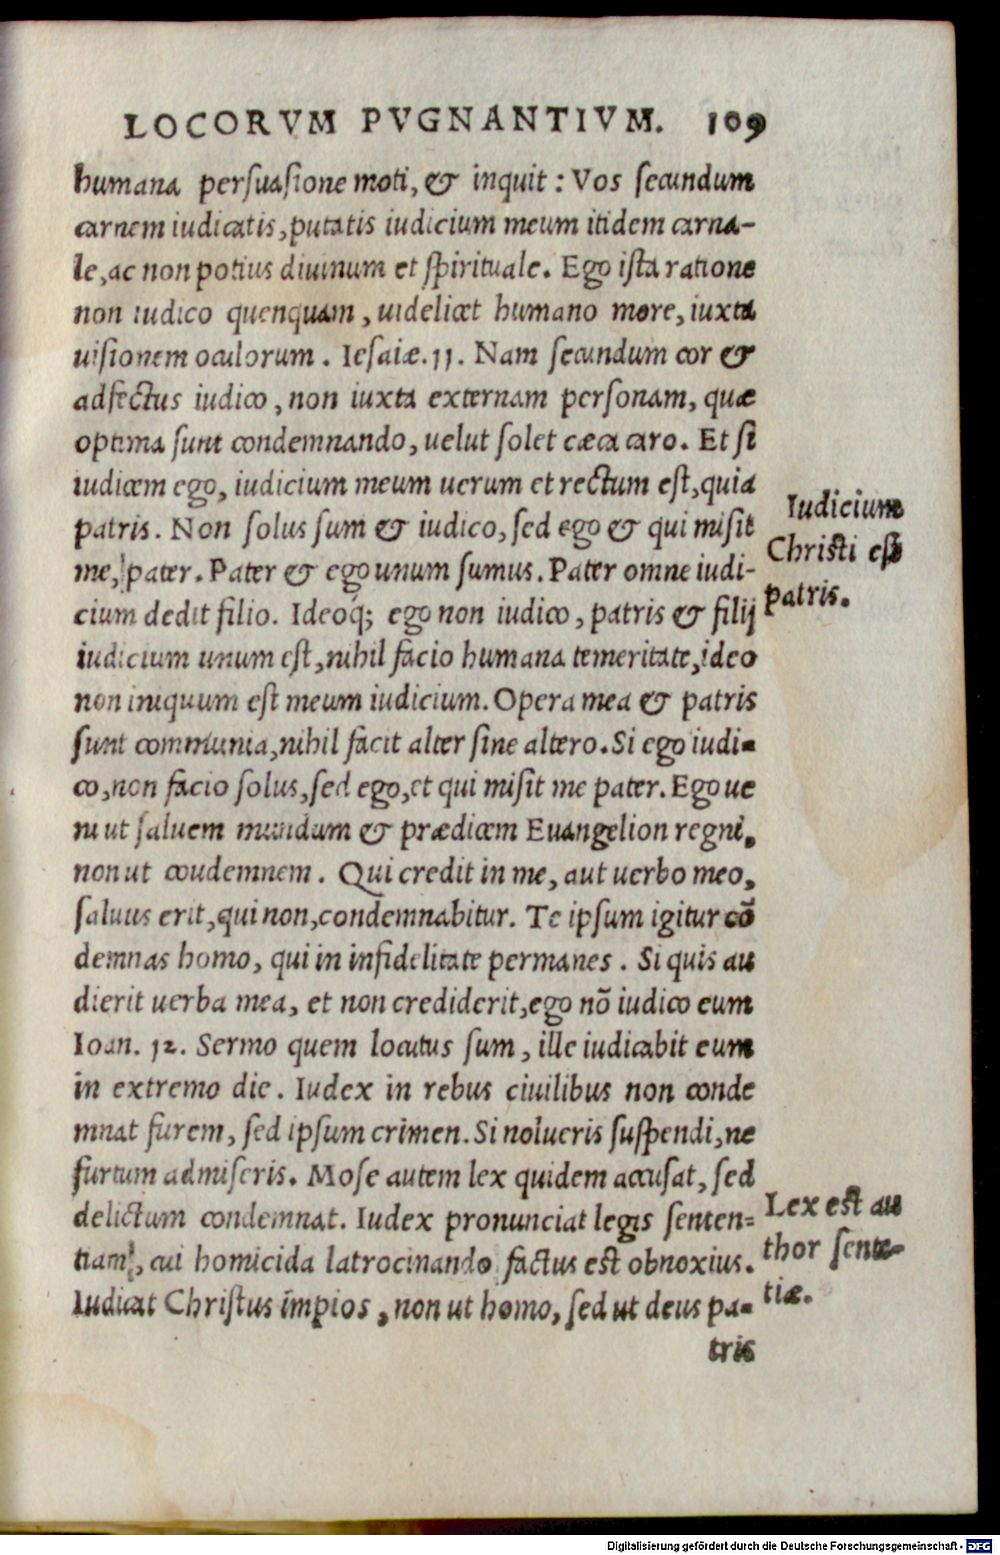 LOCORVM PVGNANTIVM. 109
humana persuasione moti, & inquit : Vos secundum
carnem iudicatis, putatis iudicium meum itidem carna-
le, ac non potius diuinum et spirituale. Ego ista ratione
non iudico quenquam, uidelicet humano more, iuxta
uisionem oculorum. Iesaiæ. 11. Nam secundum cor &
adfectus iudico, non iuxta externam personam, quæ
optima sunt condemnando, uelut solet cæca caro. Et si
iudicem ego, iudicium meum uerum et rectum est, quia
patris. Non solus sum & iudico, sed ego & qui misit
me, pater. Pater & ego unum sumus. Pater omne iudi-
cium dedit filio. Ideoq; ego non iudico, patris & filij
iudicium unum est, nihil facio humana temeritate, ideo
non iniquum est meum iudicium. Opera mea & patris
sunt communia, nihil facit alter sine altero. Si ego iudi-
co, non facio solus, sed ego, et qui misit me pater. Ego ue
ni ut saluem mundum & prædicem Euangelion regni,
non ut coudemnem. Qui credit in me, aut uerbo meo,
saluus erit, qui non, condemnabitur. Te ipsum igitur cō
demnas homo, qui in infidelitate permanes. Si quis au
dierit uerba mea, et non crediderit, ego nō iudico eum
Ioan. 12. Sermo quem locutus sum, ille iudicabit eum
in extremo die. Iudex in rebus ciuilibus non conde
mnat furem, sed ipsum crimen. Si nolueris suspendi, ne
furtum admiseris. Mose autem lex quidem accusat, sed
delictum condemnat. Iudex pronunciat legis senten=
tiam, cui homicida latrocinando factus est obnoxius.
Iudicat Christus impios, non ut homo, sed ut deus pa-
tris
Iudicium
Christi est
patris.
Lex est au
thor senté-
tiæ.
Digitalisierung gefördert durch die Deutsche Forschungsgemeinschaft - DFG